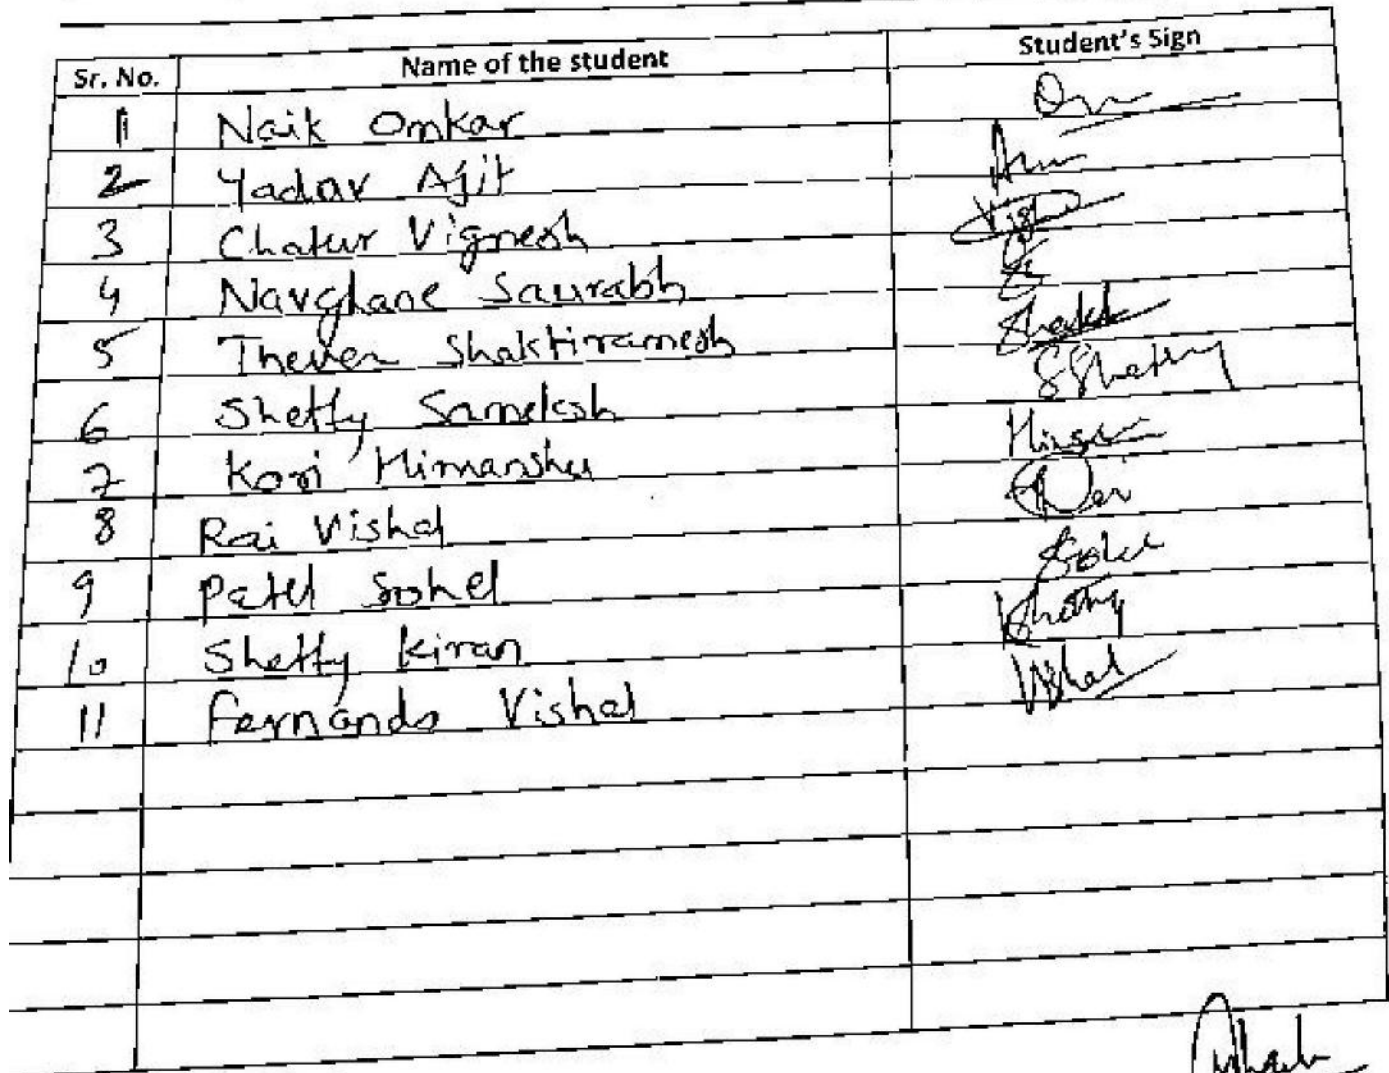 Sr. No. Name of the student Student's Sign
1 Naik Omkar
2 Yadav Ajit
3 Chatur Vignesh
4 Navghane Saurabh
5 Theven Shaktirramesh Shakti
6 Shetty Sameksh SShetty
7 Kori Himanshu
8 Rai Vishal
9 Patel Sohel Sohel
10 Shetty Kiran KShetty
11 Fernando Vishal Vishal